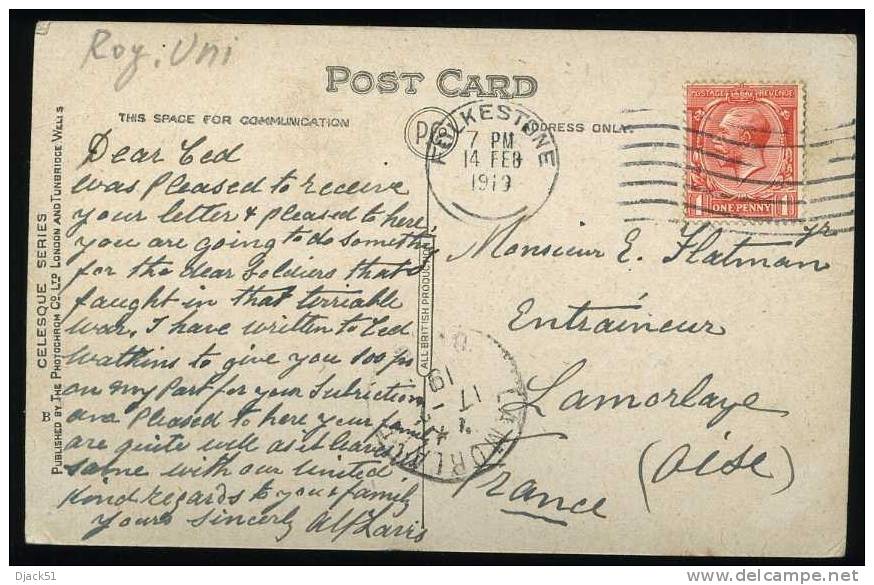 Roy. Uni
POST CARD
THIS SPACE FOR COMMUNICATION
ADDRESS ONLY.
FOLKESTONE
7 PM
14 FEB
1919
POSTAGE REVENUE
1 ONE PENNY 1
Dear Ted
was Pleased to receive
your letter & pleased to here
you are going to do somethig
for the dear Soldiers that
faught in that terriable
war, I have written to Ted
Watkins to give you 100 frs
on my Part for your Subriction
and Pleased to here your family
are quite well as it leaves
same with our united
Kind regards to you & family
yours sincerly Alf
Monsieur E. Flatman Jr
Entraîneur
Lamorlaye
(Oise)
France
LAMORLAYE
17
19
CELESQUE SERIES
PUBLISHED BY THE PHOTOCHROM CO. LTD LONDON AND TUNBRIDGE WELLS
B
ALL BRITISH PRODUCTION
Djack51
delcampe.net